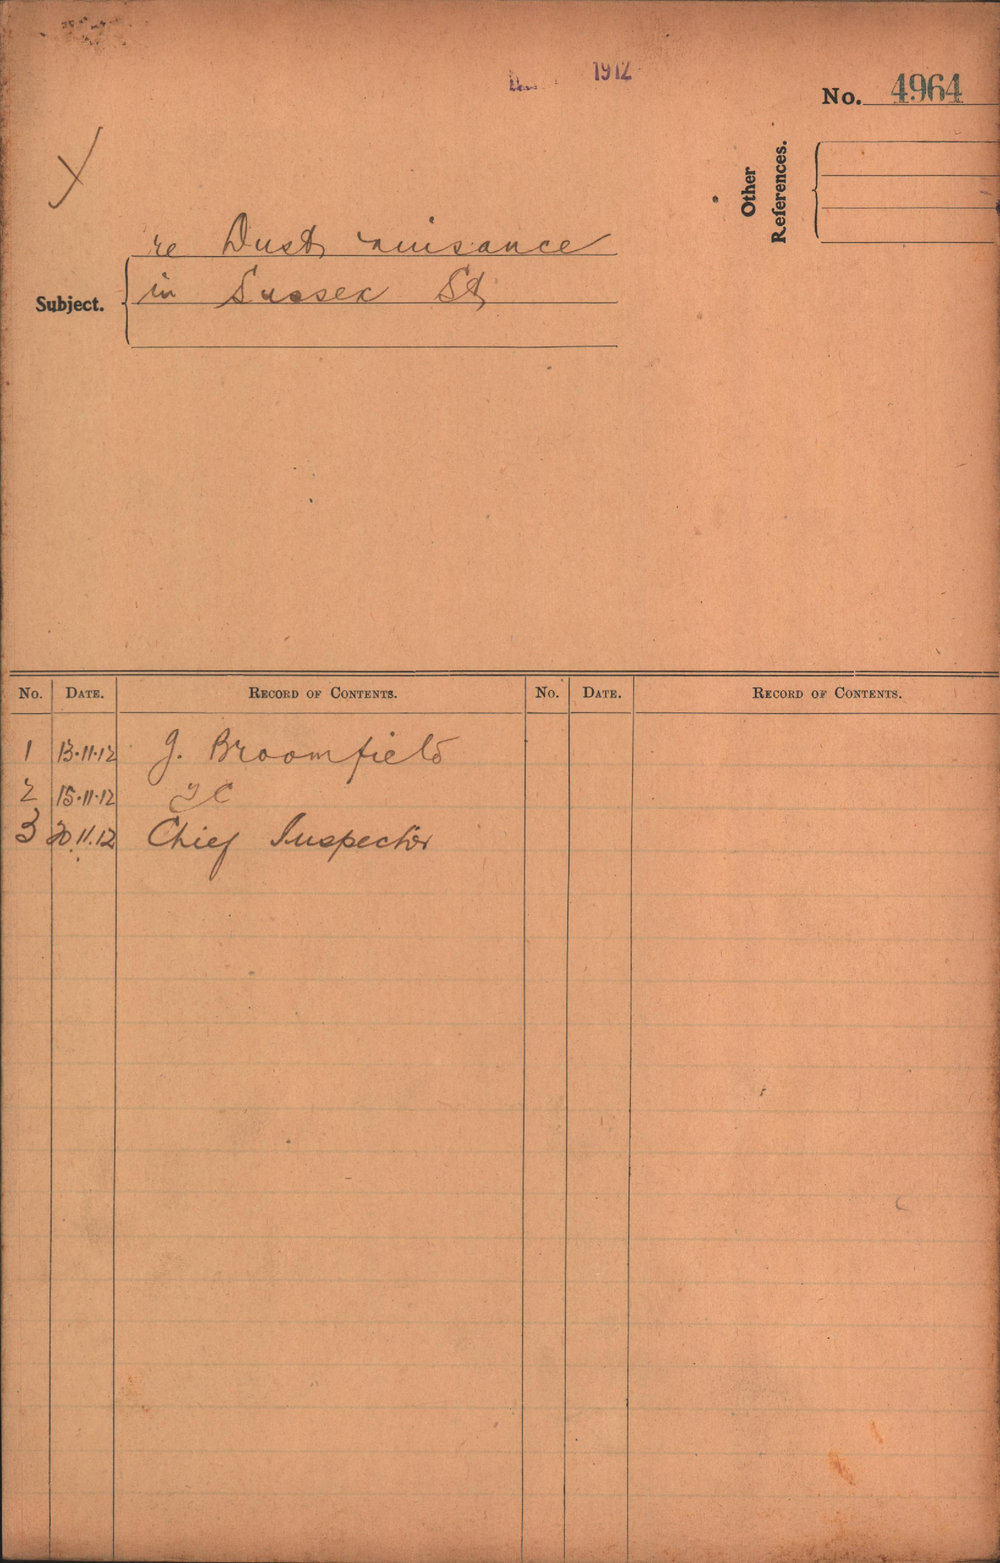 1912
No. 4964
Other
References.
re Dust nuisance
Subject.
in Sussex St
No. DATE. RECORD OF CONTENTS. No. DATE. RECORD OF CONTENTS.
1 13.11.12 J. Broomfield
2 15.11.12 TC
3 20.11.12 Chief Inspector